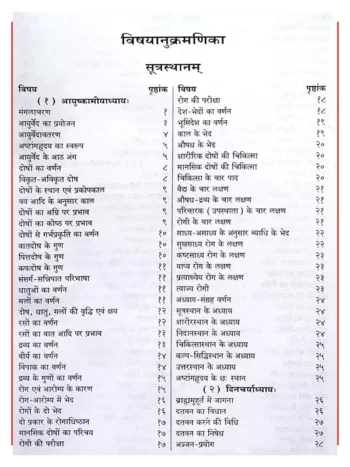 विषयानुक्रमणिका
सूत्रस्थानम्
विषय पृष्ठांक
( १ ) आयुष्कामीयाध्यायः
मंगलाचरण १
आयुर्वेद का प्रयोजन ३
आयुर्वेदावतरण ४
अष्टांगहृदय का स्वरूप ५
आयुर्वेद के आठ अंग ५
दोषों का वर्णन ८
विकृत-अविकृत दोष ८
दोषों के स्थान एवं प्रकोपकाल ९
वय आदि के अनुसार काल ९
दोषों का अग्नि पर प्रभाव ९
दोषों का कोष्ठ पर प्रभाव ९
दोषों से गर्भप्रकृति का वर्णन १०
वातदोष के गुण १०
पित्तदोष के गुण १०
कफदोष के गुण ११
संसर्ग-सन्निपात परिभाषा ११
धातुओं का वर्णन ११
मलों का वर्णन ११
दोष, धातु, मलों की वृद्धि एवं क्षय १२
रसों का वर्णन १२
रसों का वात आदि पर प्रभाव १३
द्रव्य का वर्णन १३
वीर्य का वर्णन १४
विपाक का वर्णन १४
द्रव्य के गुणों का वर्णन १५
रोग एवं आरोग्य के कारण १५
रोग-आरोग्य में भेद १६
रोगों के दो भेद १६
दो प्रकार के रोगाधिष्ठान १७
मानसिक दोषों का परिचय १७
रोगी की परीक्षा १७
विषय पृष्ठांक
रोग की परीक्षा १८
देश-भेदों का वर्णन १८
भूमिदेश का वर्णन १९
काल के भेद १९
औषध के भेद २०
शारीरिक दोषों की चिकित्सा २०
मानसिक दोषों की चिकित्सा २०
चिकित्सा के चार पाद २०
वैद्य के चार लक्षण २१
औषध-द्रव्य के चार लक्षण २१
परिचारक ( उपस्थाता ) के चार लक्षण २१
रोगी के चार लक्षण २१
साध्य-असाध्य के अनुसार व्याधि के भेद २२
सुखसाध्य रोग के लक्षण २२
कष्टसाध्य रोग के लक्षण २३
याप्य रोग के लक्षण २३
प्रत्याख्येय रोग के लक्षण २३
त्याज्य रोगी २३
अध्याय-संग्रह वर्णन २४
सूत्रस्थान के अध्याय २४
शारीरस्थान के अध्याय २४
निदानस्थान के अध्याय २४
चिकित्सास्थान के अध्याय २५
कल्प-सिद्धिस्थान के अध्याय २५
उत्तरस्थान के अध्याय २५
अष्टांगहृदय के छः स्थान २५
( २ ) दिनचर्याध्यायः
ब्राह्ममुहूर्त में जागना २६
दतवन का विधान २६
दतवन करने की विधि २७
दतवन का निषेध २७
अञ्जन-प्रयोग २८